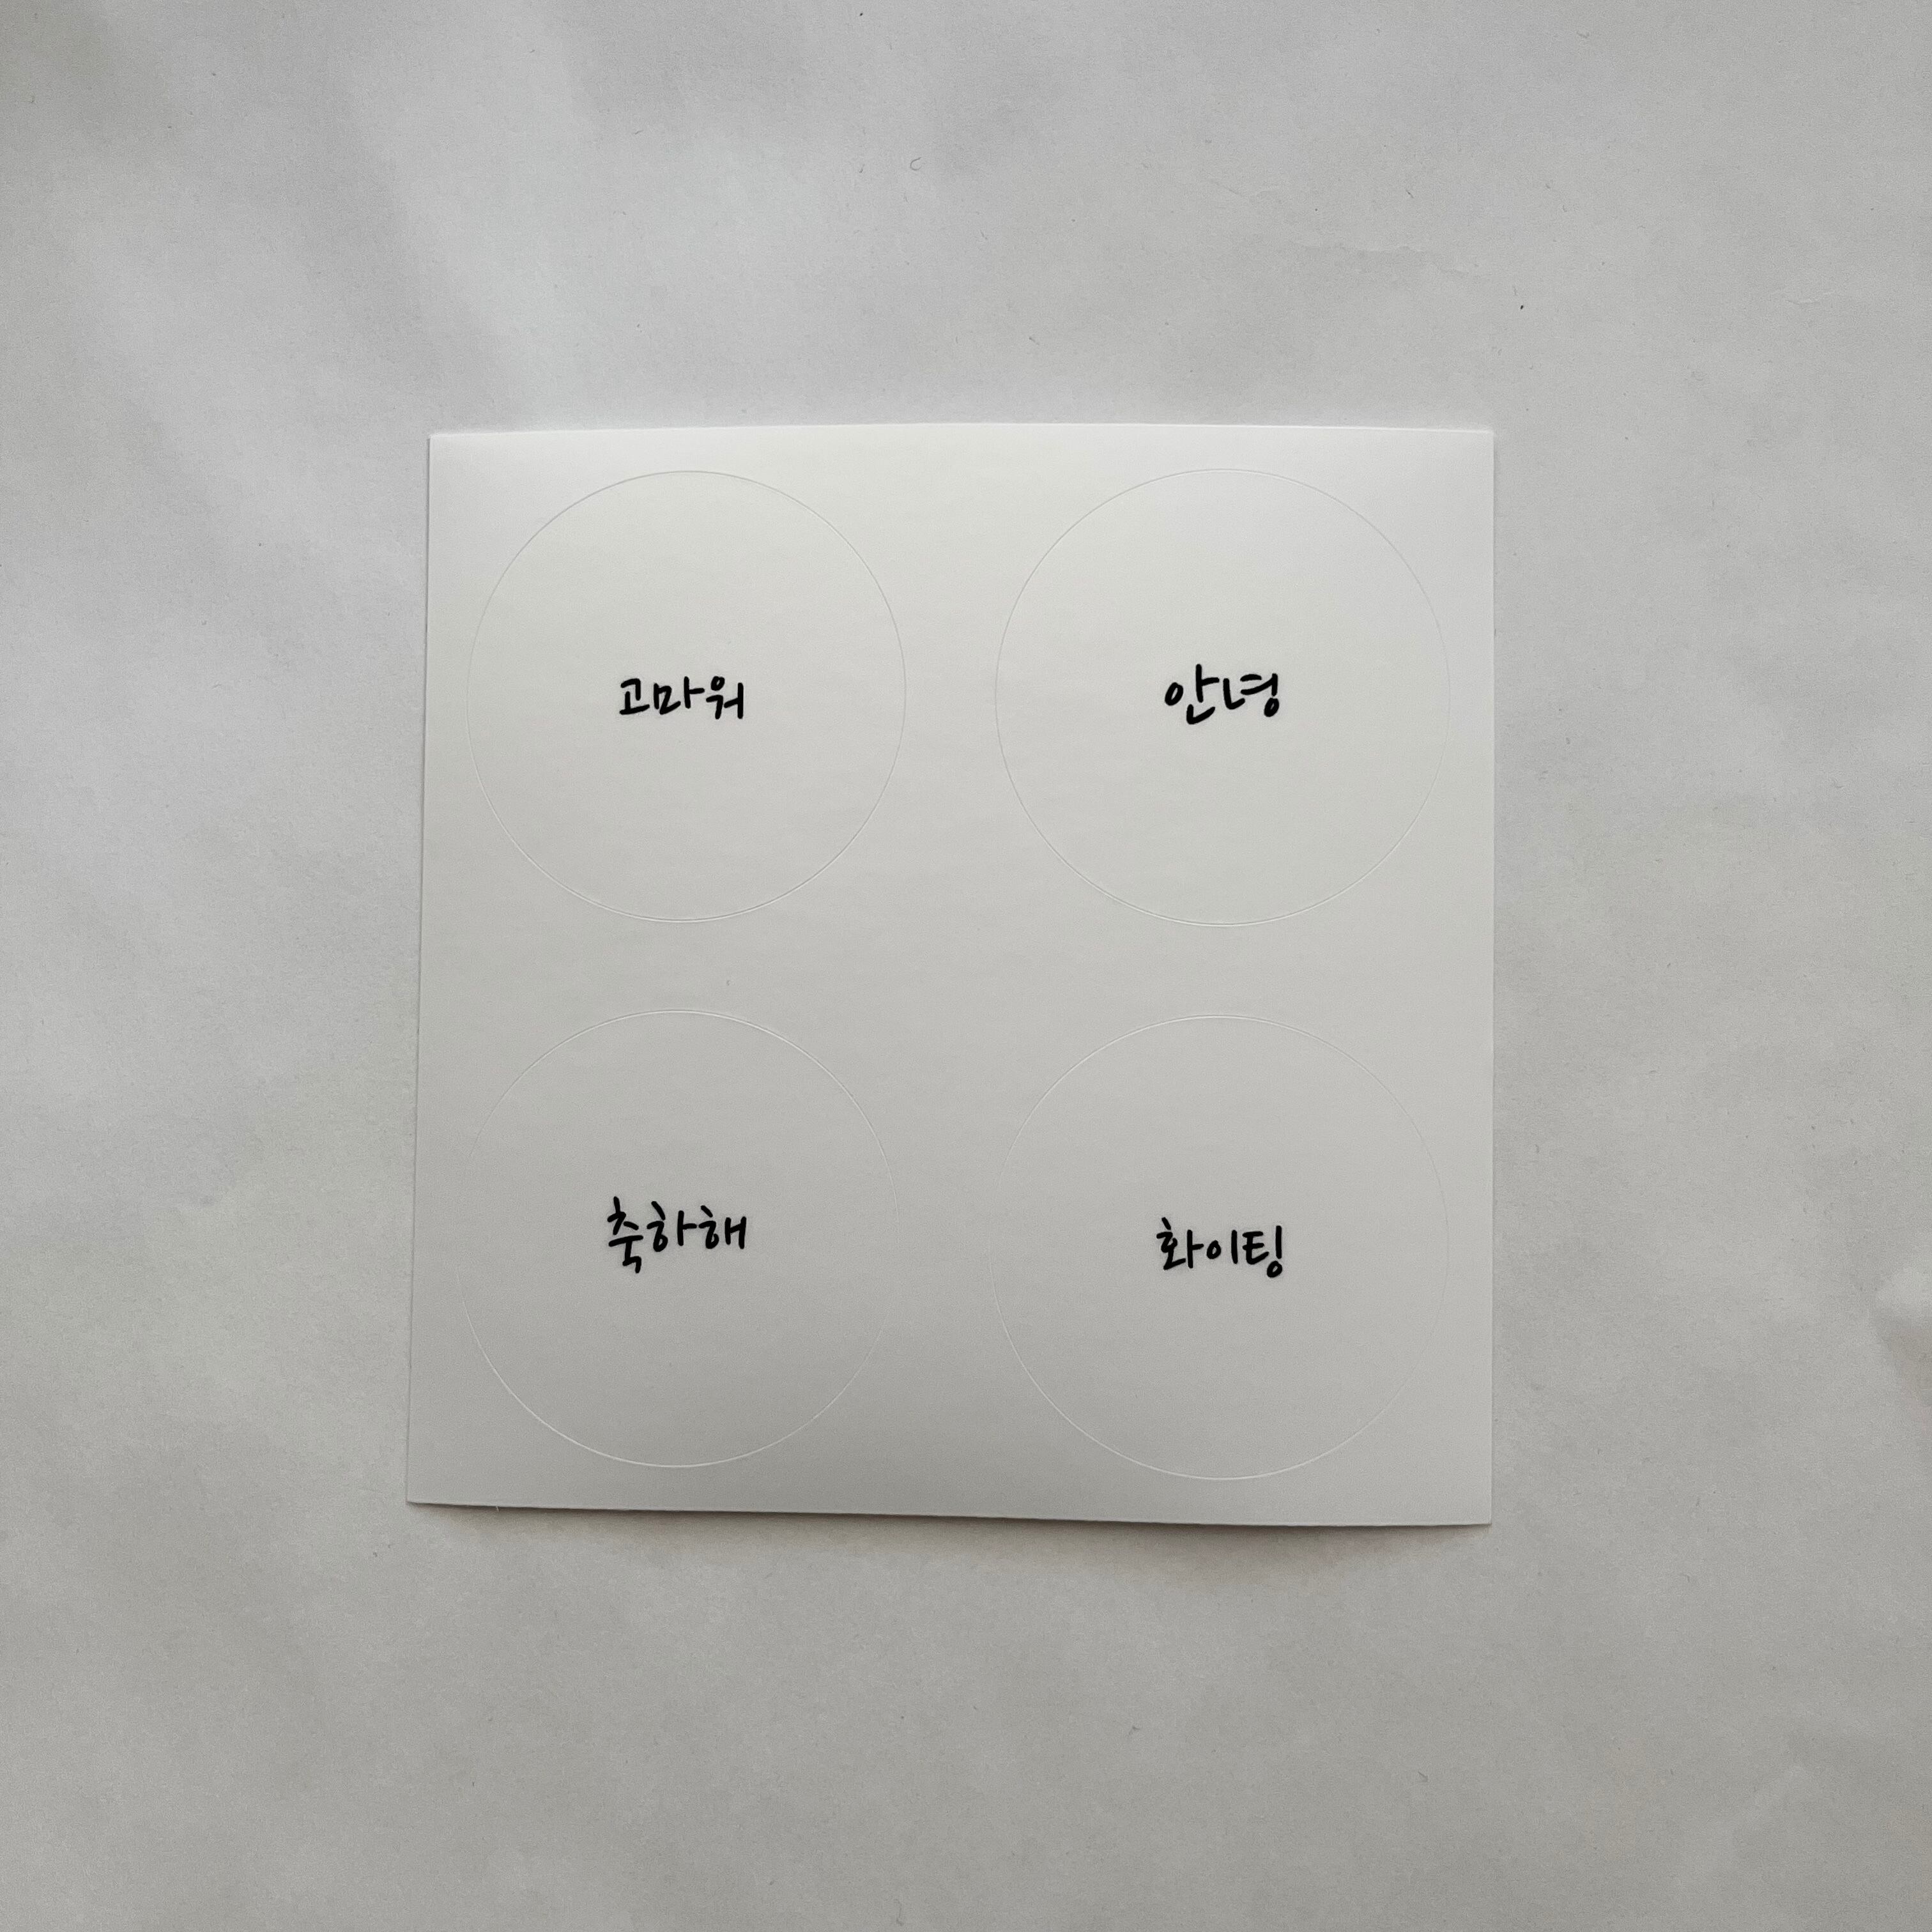 고마워
안녕
축하해
화이팅